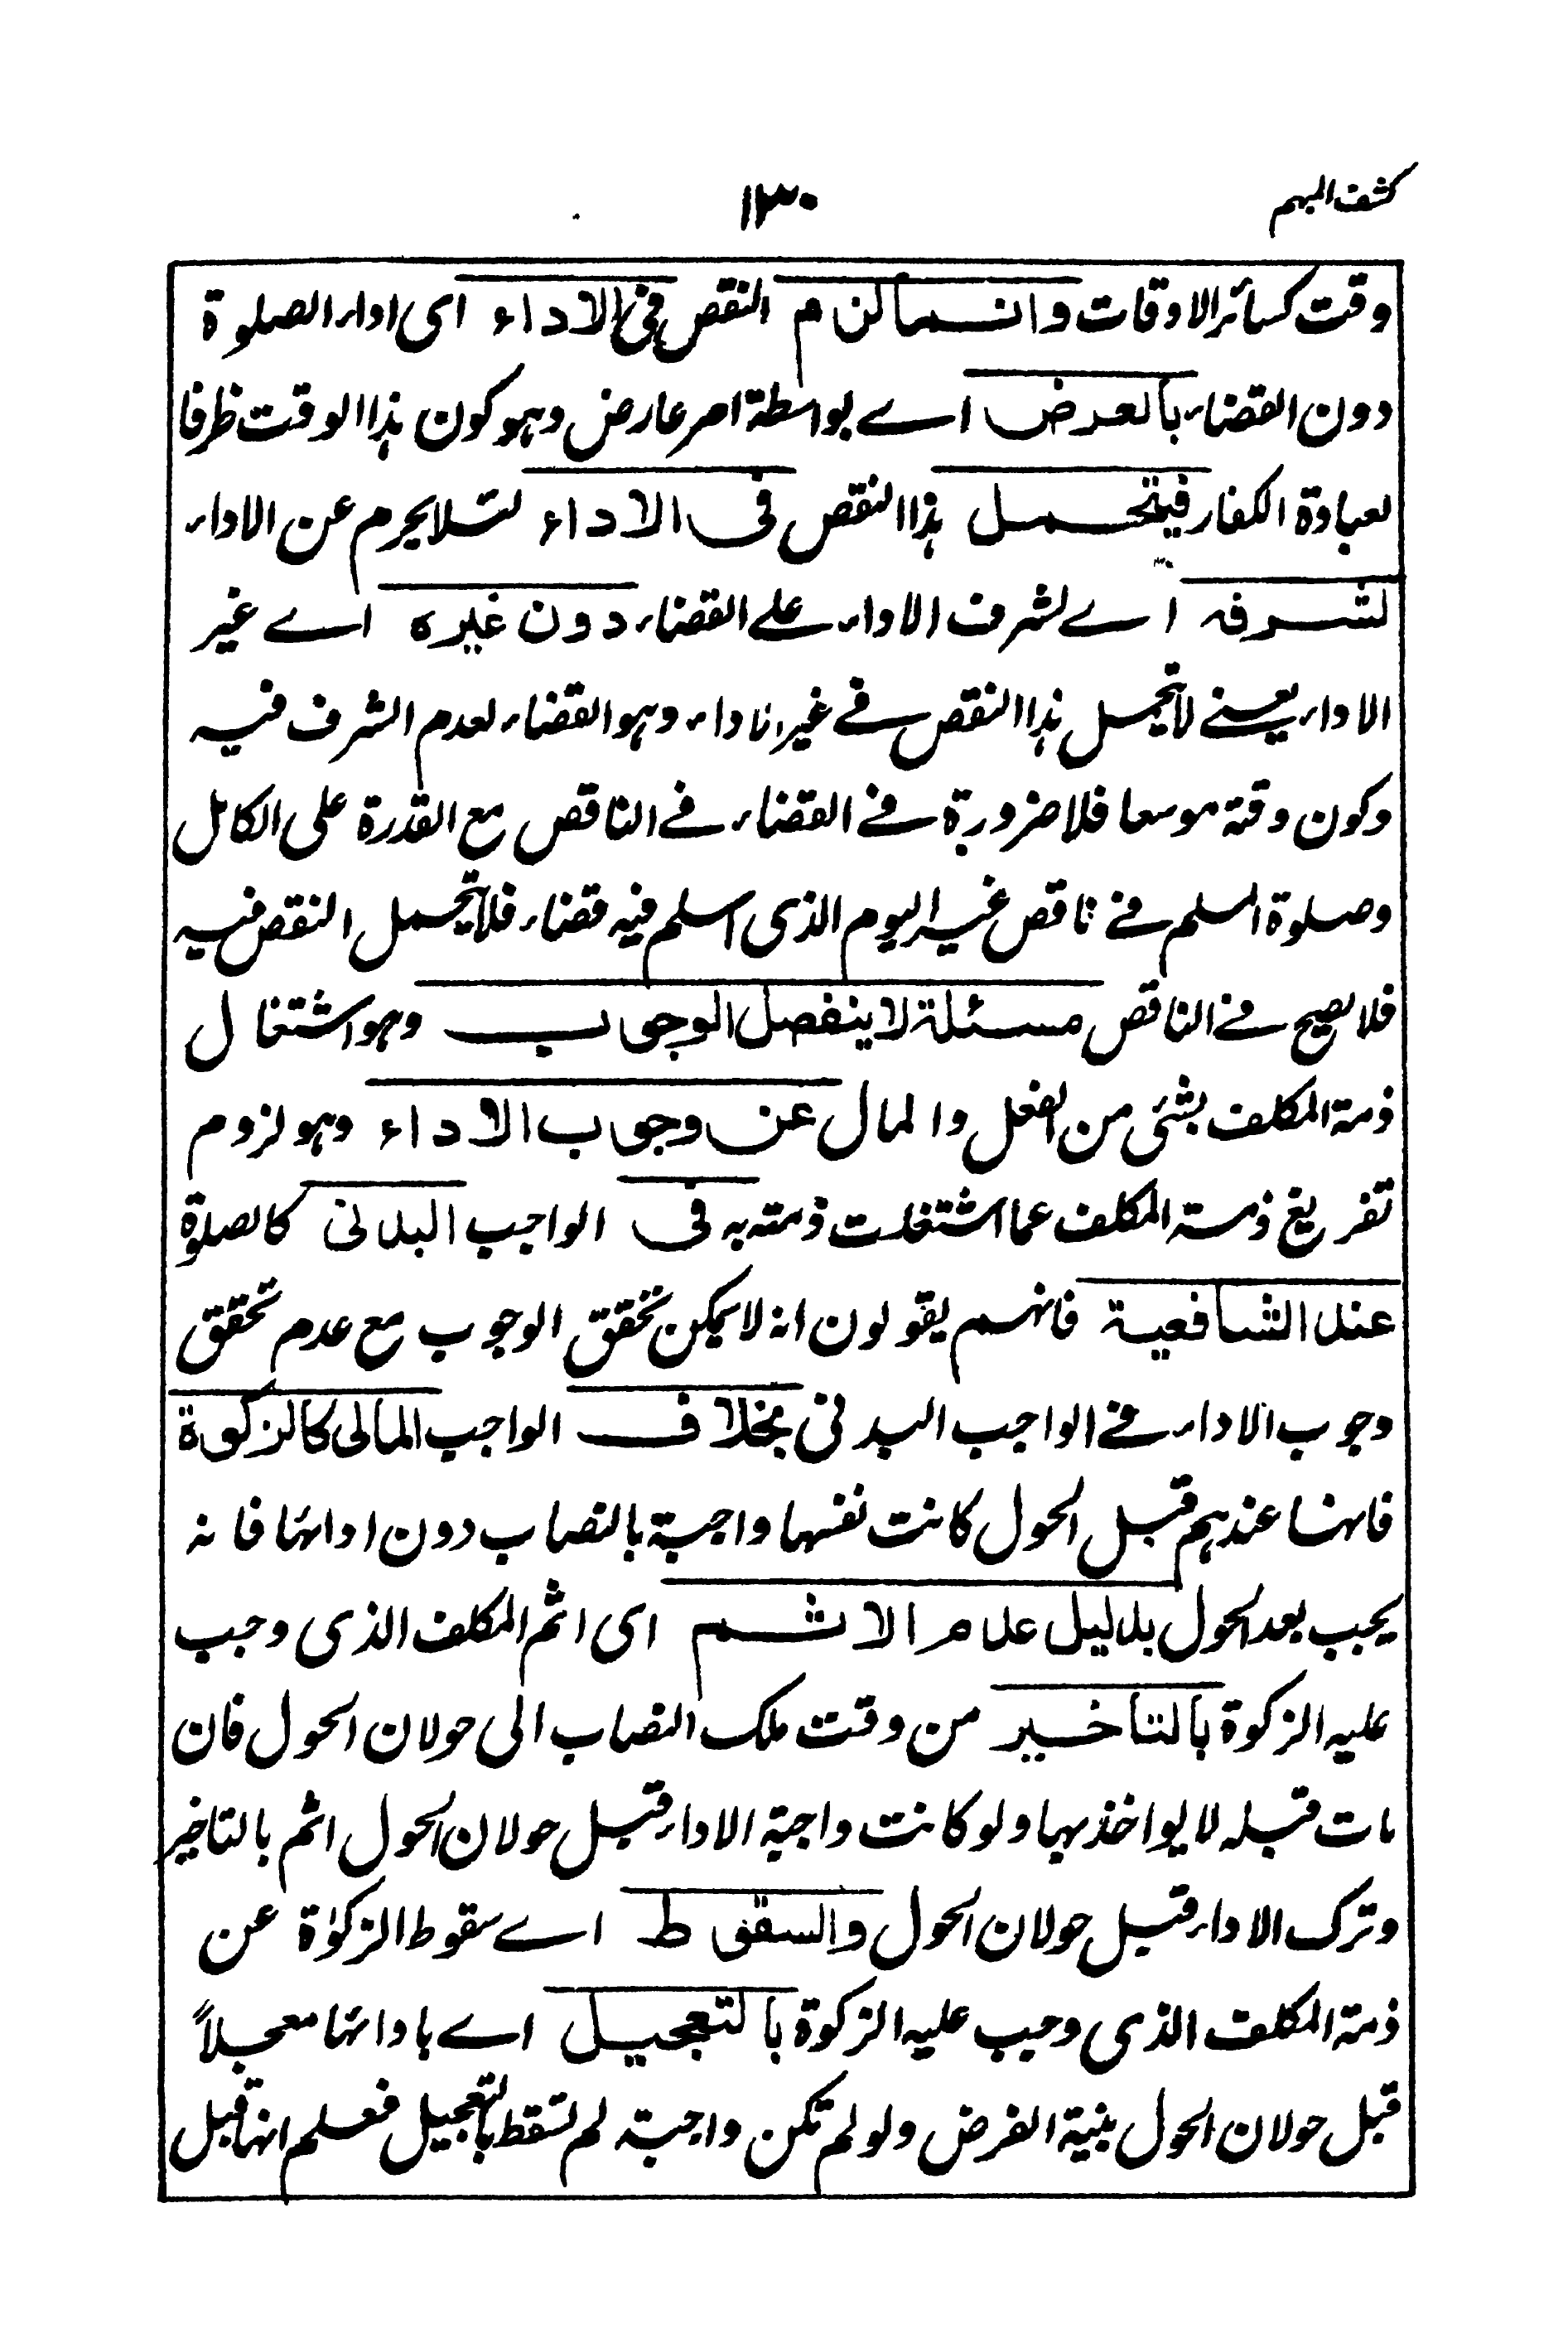 كشف المبهم
١٣٠
وقت كسائر الاوقات وانما لزم النقص في الاداء اى اداء الصلوة
دون القضاء بالعرض اے بواسطة امر عارض وهو كون هذا الوقت ظرفا
لعبادة الكفار فيتحمل هذا النقص فى الاداء لئلا يحرم عن الاداء
لشرفه اے لشرف الاداء على القضاء دون غيره اے غير
الاداء يعنے لا يتحمل هذا النقص فے غير الاداء وهو القضاء لعدم الشرف فيه
وكون وقته موسعا فلا ضرورة فے القضاء فے الناقص مع القدرة على الكامل
وصلوة المسلم فے ناقص غير اليوم الذى اسلم فيه قضاء فلا يتحمل النقص فيه
فلا يصح فے الناقص مسئلة لا ينفصل الوجوب وهو اشتغال
ذمة المكلف بشئ من الفعل والمال عن وجوب الاداء وهو لزوم
تفريغ ذمة المكلف عما اشتغلت ذمته به فى الواجب البدنى كالصلوة
عند الشافعية فانهم يقولون انه لا يمكن تحقق الوجوب مع عدم تحقق
وجوب الاداء فے الواجب البدنى بخلاف الواجب المالى كالزكوة
فانها عندهم قبل الحول كانت نفسها واجبة بالنصاب دون ادائها فانه
يجب بعد الحول بدليل عدم الاثم اى اثم المكلف الذى وجب
عليه الزكوة بالتاخير من وقت ملك النصاب الى حولان الحول فان
مات قبله لا يواخذ بها ولو كانت واجبة الاداء قبل حولان الحول اثم بالتاخير
وترك الاداء قبل حولان الحول والسقوط اے سقوط الزكوٰة عن
ذمة المكلف الذى وجب عليه الزكوة بالتعجيل اے بادائها معجلاً
قبل حولان الحول بنية الفرض ولو لم تكن واجبة لم تسقط بالتعجيل فعلم انها قبل